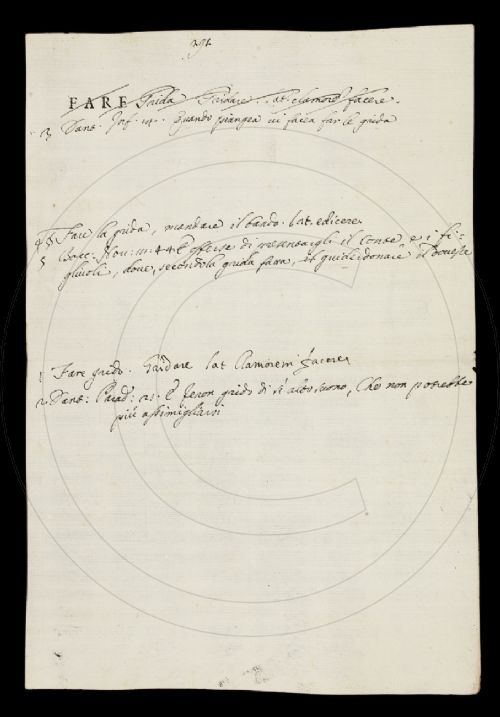 291.
FARE Grida Gridare. lat. clamorē facere.
3 Dant. Inf. 14. Quando piangea vi facea far le grida
4 § Fare la grida, mandare il bando. lat. edicere
5 Bocc. Nov: 18: 44 E offerse di presentargli il Conte, e i fi:
gliuoli, dove, secondo la grida fatta, il guiderdonare si dovesse
1 Fare grido. Gridare lat Clamorem facere
2 Dant: Parad: 21. E feron grido di sì alto suono, Che non potrebbe
più assimigliarsi